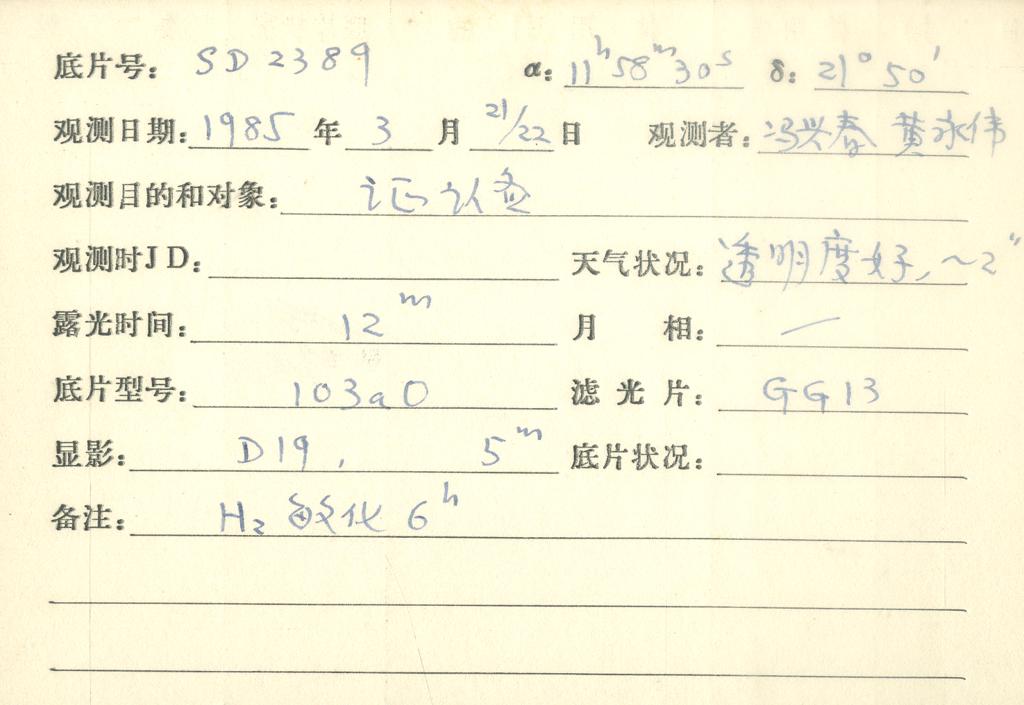 底片号: SD2389 α: 11ʰ58ᵐ30ˢ δ: 21°50′
观测日期: 1985 年 3 月 21/22 日 观测者: 冯兴春 黄永伟
观测目的和对象: 证认
观测时JD:
天气状况: 透明度好, ~2″
露光时间: 12ᵐ 月相: —
底片型号: 103aO 滤光片: GG13
显影: D19, 5ᵐ 底片状况:
备注: H₂ 敏化 6ʰ